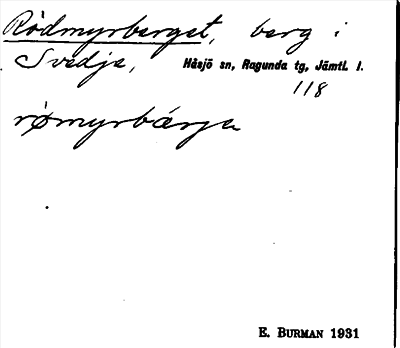 Rödmyrberget, berg i
Svedje, Håsjö sn, Ragunda tg, Jämtl. l.
118
rømyrbárje
E. BURMAN 1931